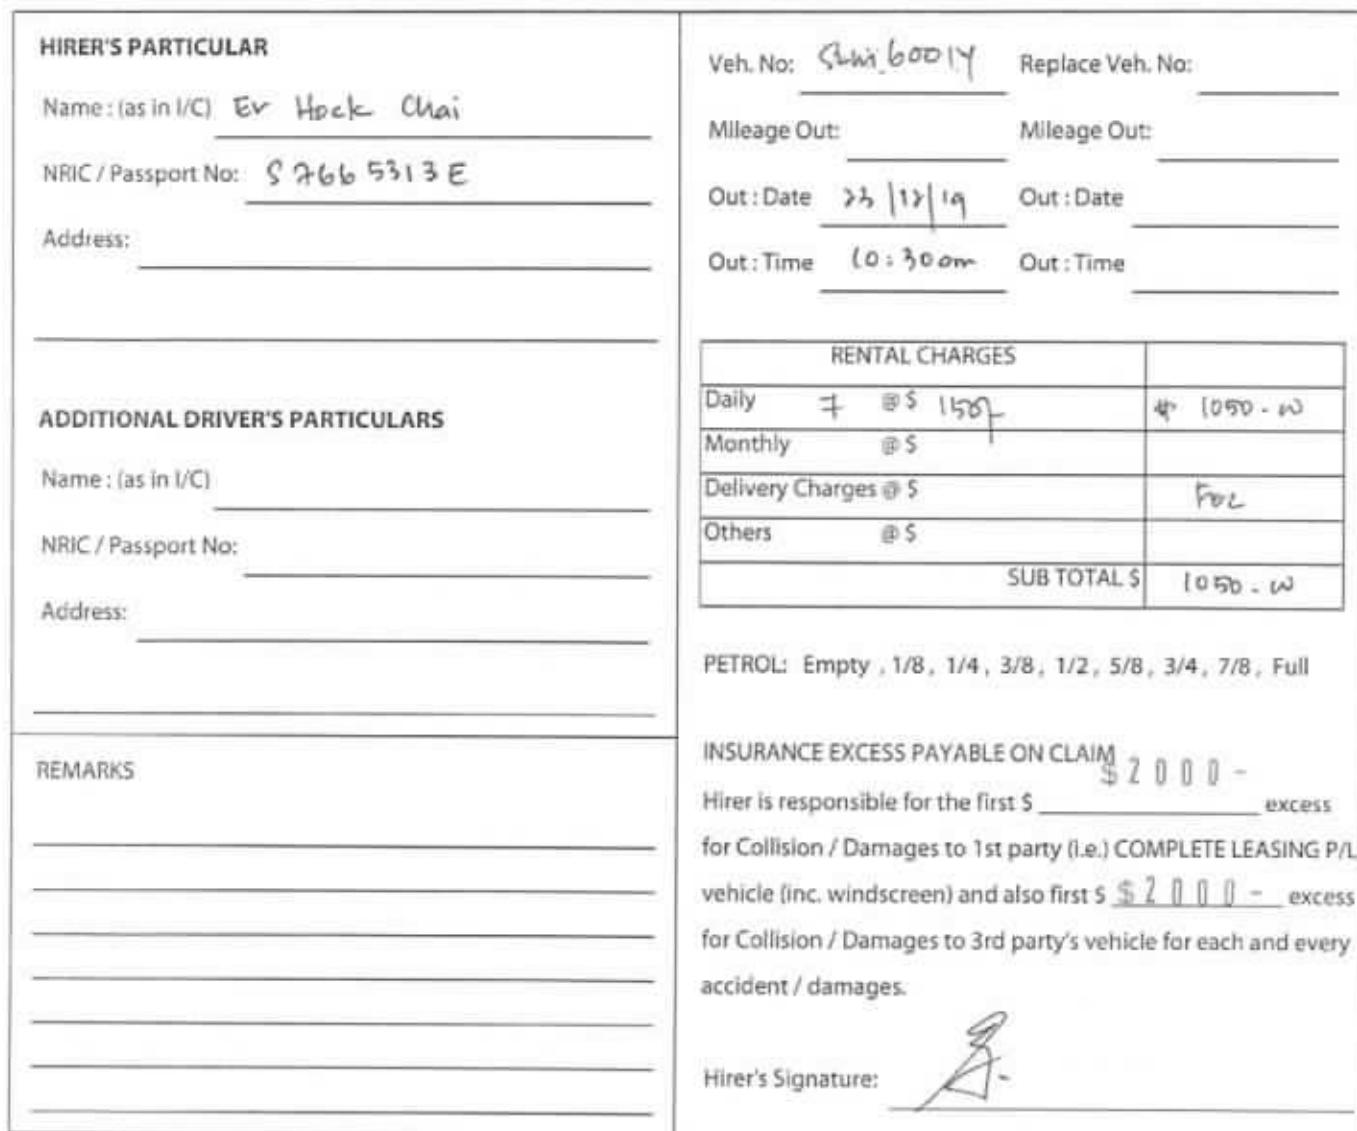 HIRER'S PARTICULAR
Name : (as in I/C) Er Hock Chai
NRIC / Passport No: S7665313E
Address:
ADDITIONAL DRIVER'S PARTICULARS
Name : (as in I/C)
NRIC / Passport No:
Address:
REMARKS
Veh. No: 6001Y Replace Veh. No:
Mileage Out: Mileage Out:
Out : Date 23/12/19 Out : Date
Out : Time 10:30am Out : Time
RENTAL CHARGES
Daily 7 @ $ 150/- $ 1050-00
Monthly @ $
Delivery Charges @ $ FOC
Others @ $
SUB TOTAL $ 1050-00
PETROL: Empty , 1/8 , 1/4 , 3/8 , 1/2 , 5/8 , 3/4 , 7/8 , Full
INSURANCE EXCESS PAYABLE ON CLAIM
Hirer is responsible for the first $ $2000- excess
for Collision / Damages to 1st party (i.e.) COMPLETE LEASING P/L
vehicle (inc. windscreen) and also first $ $2000- excess
for Collision / Damages to 3rd party's vehicle for each and every
accident / damages.
Hirer's Signature: